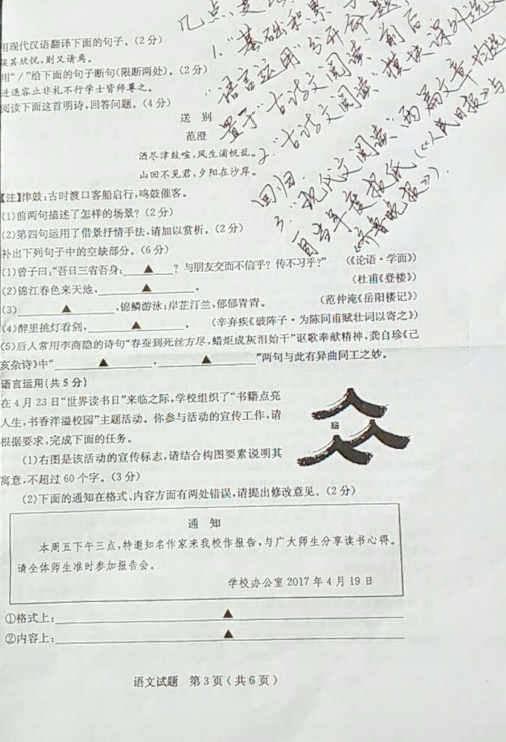 几点变
1."基础积累
"语言运用"分开命题
置于"古诗文阅读"前后
2."古诗文阅读"
回归
3."现代文阅读"两篇文章均选
自当年度报纸(《人民日报》与
《齐鲁晚报》).
用现代汉语翻译下面的句子。(2分)
其欣悦,则又请焉。
用"/"给下面的句子断句(限断两处)。(2分)
进退容止非礼不行学士皆师尊之。
阅读下面这首明诗,回答问题。(4分)
送 别
范澄
酒尽津鼓喧,风生浦帆乱。
山回不见君,夕阳在沙岸。
【注】津鼓:古时渡口客船启行,鸣鼓催客。
(1)前两句描述了怎样的场景?(2分)
(2)第四句运用了借景抒情手法,请加以赏析。(2分)
补出下列句子中的空缺部分。(6分)
(1)曾子曰:"吾日三省吾身:▲?与朋友交而不信乎?传不习乎?" (《论语·学而》)
(2)锦江春色来天地,▲。 (杜甫《登楼》)
(3)▲,锦鳞游泳;岸芷汀兰,郁郁青青。 (范仲淹《岳阳楼记》)
(4)醉里挑灯看剑,▲。▲, (辛弃疾《破阵子·为陈同甫赋壮词以寄之》)
(5)后人常用李商隐的诗句"春蚕到死丝方尽,蜡炬成灰泪始干"讴歌奉献精神,龚自珍《己
亥杂诗》中"▲,▲"两句与此有异曲同工之妙。
语言运用(共5分)
在4月23日"世界读书日"来临之际,学校组织了"书籍点亮
人生,书香洋溢校园"主题活动。你参与活动的宣传工作,请
根据要求,完成下面的任务。
(1)右图是该活动的宣传标志,请结合构图要素说明其
寓意,不超过60个字。(3分)
(2)下面的通知在格式、内容方面有两处错误,请提出修改意见。(2分)
通 知
本周五下午三点,特邀知名作家来我校作报告,与广大师生分享读书心得。
请全体师生准时参加报告会。
学校办公室2017年4月19日
①格式上:▲
②内容上:▲
语文试题 第3页(共6页)